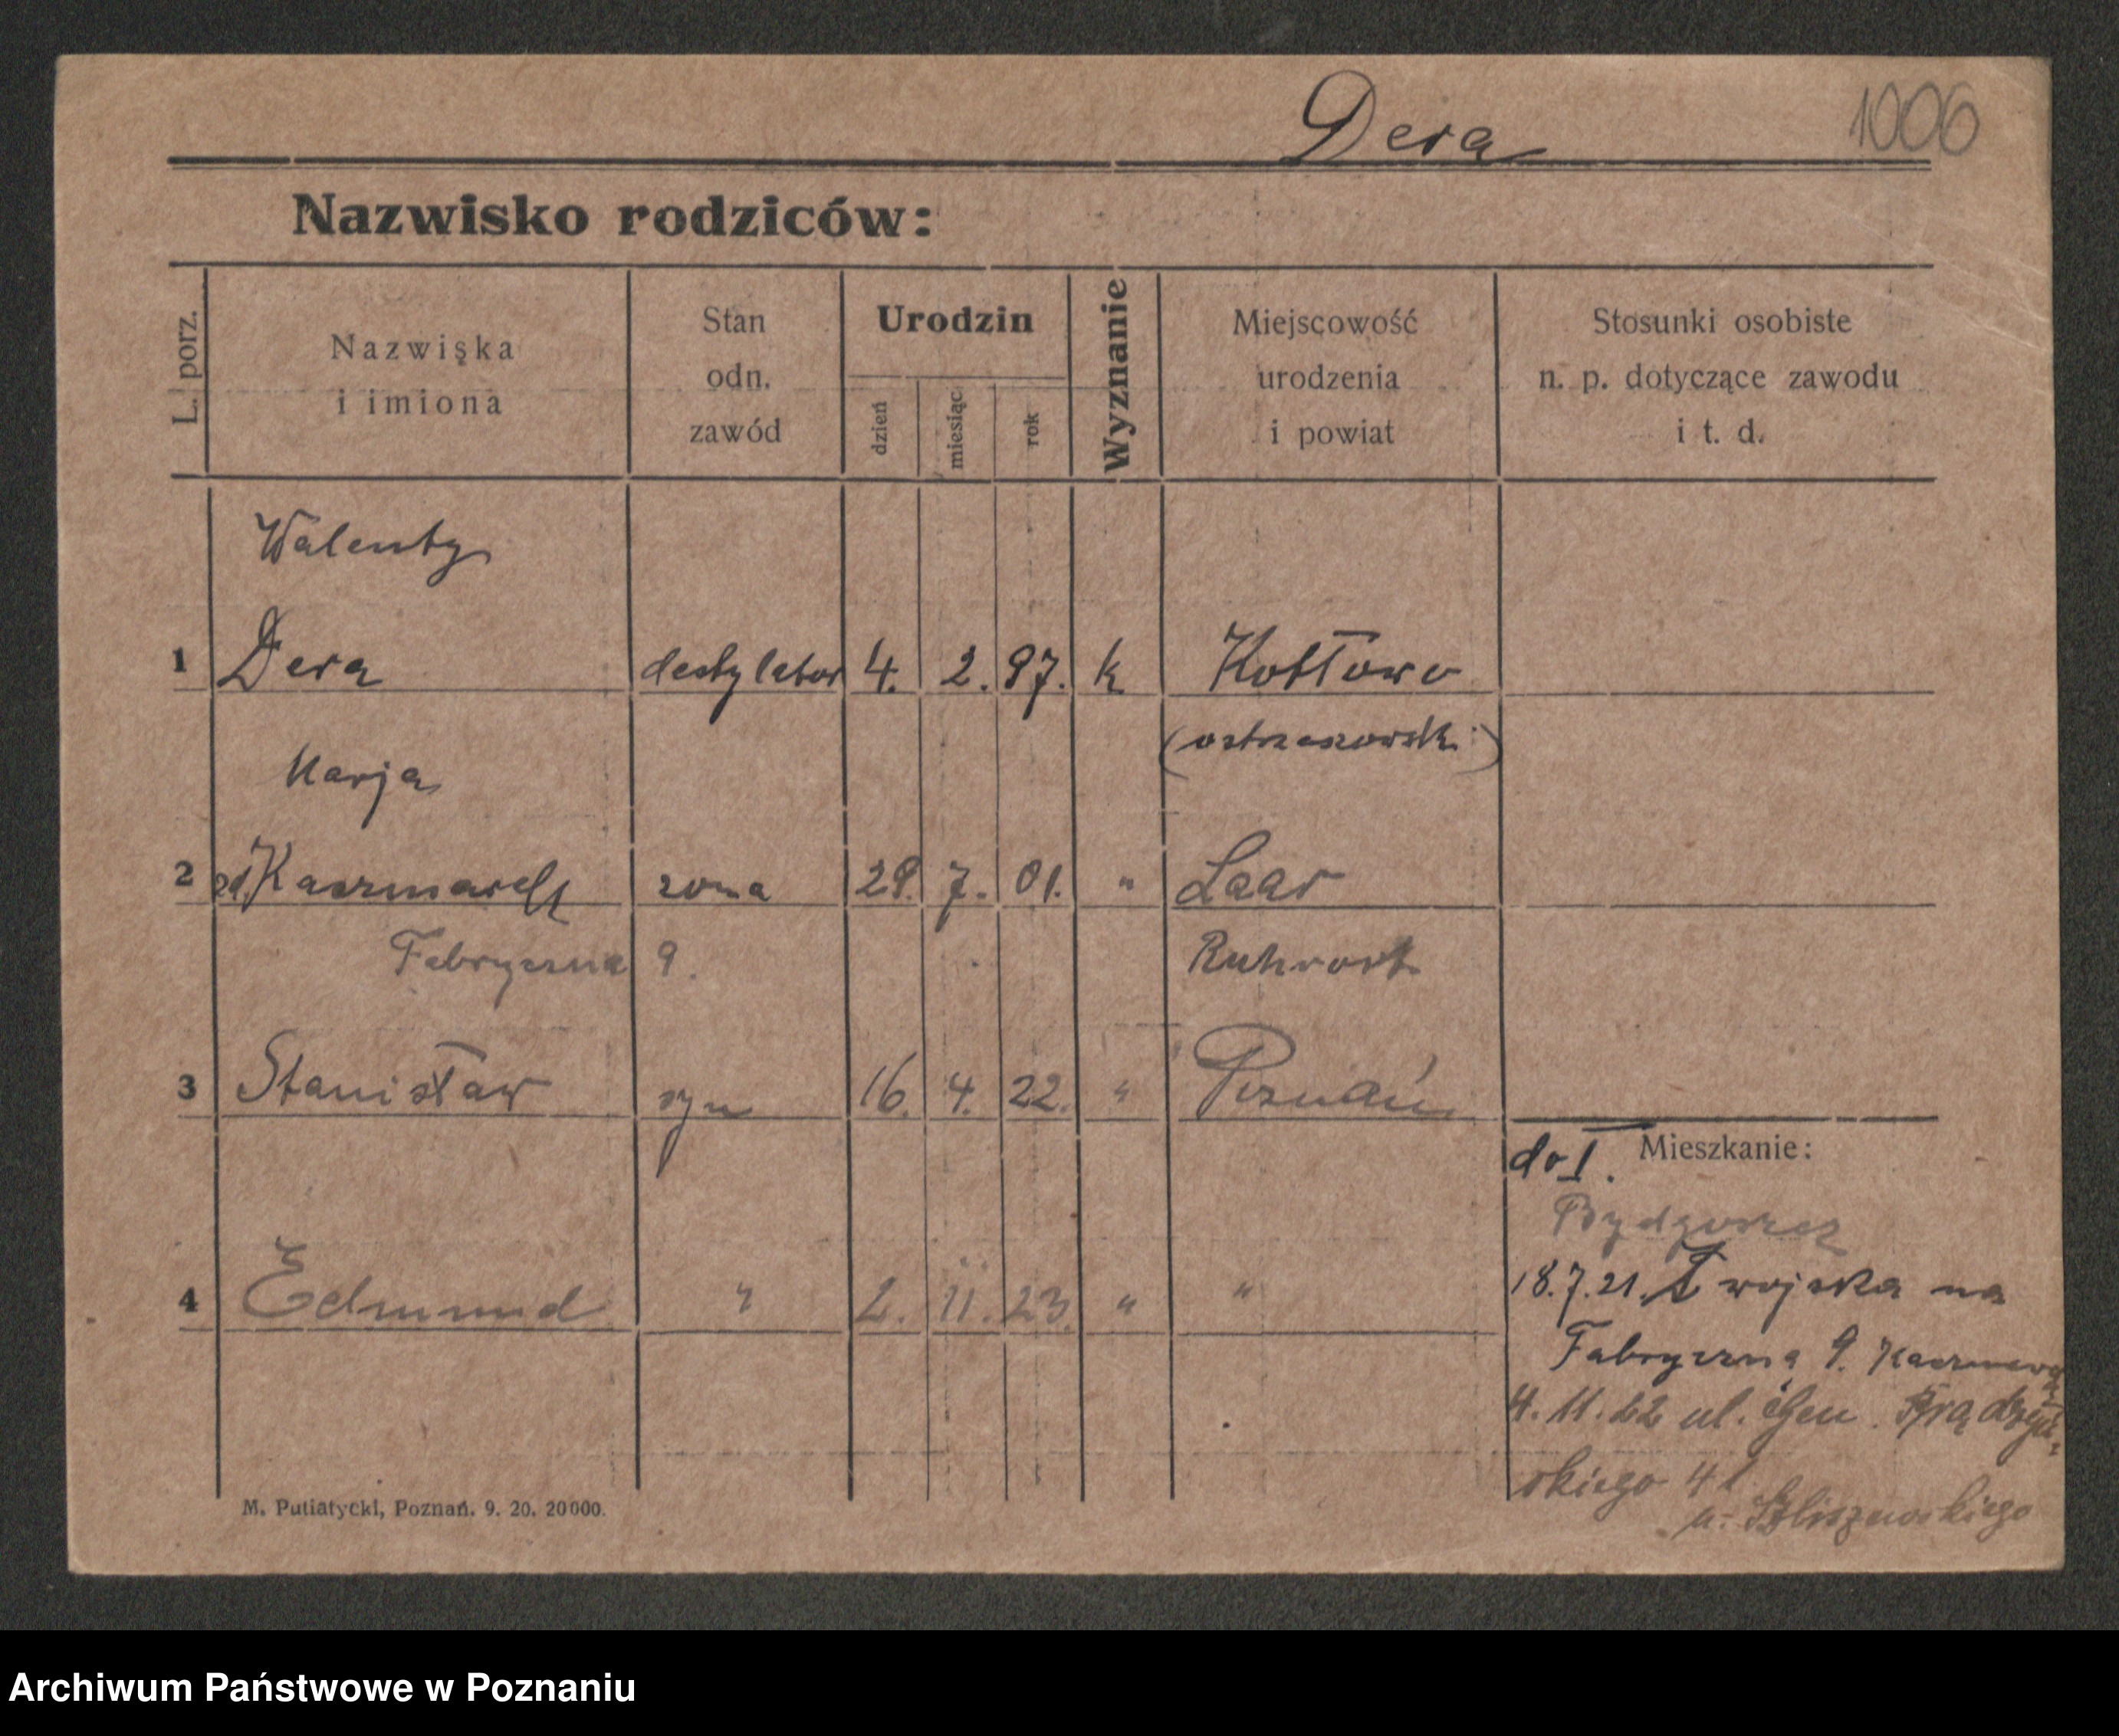 Dera 1006
Nazwisko rodziców:
L. porz.
Nazwiska
i imiona
Stan
odn.
zawód
Urodzin
dzień
miesiąc
rok
Wyznanie
Miejscowość
urodzenia
i powiat
Stosunki osobiste
n. p. dotyczące zawodu
i t. d.
Walenty
1 Dera destylator 4. 2. 97. k Kotłowo
(ostrzeszowski)
Marja
2 zd. Kaczmarek żona 29. 7. 01. " Laar
Fabryczna 9. Ruhrort
3 Stanisław syn 16. 4. 22. " Poznań
do I. Mieszkanie:
Bydgoszcz
18.7.21. Z wojska na
4 Edmund " 2. 11. 23. " "
Fabryczną 9. Kaczmarek
4. 11. 22 ul. Gen. Prądzyń-
skiego 41
u.
M. Putiatycki, Poznań. 9. 20. 20000.
Archiwum Państwowe w Poznaniu